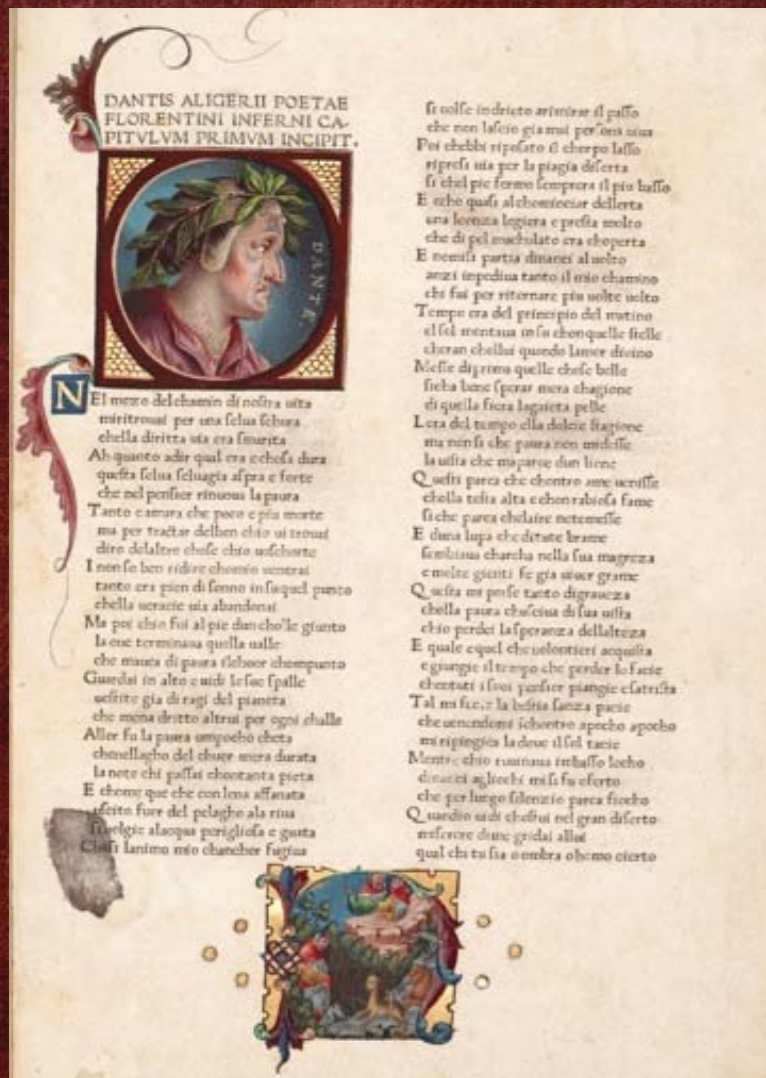 DANTIS ALIGERII POETAE
FLORENTINI INFERNI CA-
PITVLVM PRIMVM INCIPIT.
DANTE.
NEl mezo delchamin di noſtra uita
miritrouai per una ſelua ſchura
chella diritta uia era ſmarita
Ah quanto adir qual era e choſa dura
queſta ſelua ſeluagia aſpra e forte
che nel penſier rinuoua la paura
Tanto e amara che poco e piu morte
ma per tractar delben chio ui trouai
diro delaltre choſe chio
I non ſo ben ridire chomio uentrai
tanto era pien di ſonno in ſu quel punto
chella ueracie uia abandonai
Ma poi chio fui al pie dun cholle giunto
la oue terminaua quella ualle
che mauea di paura ilchuor chompunto
Guardai in alto e uidi le ſue ſpalle
ueſtite gia di ragi del pianeta
che mena dritto altrui per ogni challe
Allor fu la paura umpocho cheta
chenellagho del chuor mera durata
la note chi paſſai chontanta pieta
E chome que che con lena affanata
uſcito fuor del pelagho ala riua
ſi uolgie alacqua perigliosa e guata
Choſi lanimo mio chanchor fugiua
ſi uolſe indrieto arimirar il paſſo
che non laſcio gia mai perſona uiua
Poi chebbi ripoſato il chorpo laſſo
ripreſi uia per la piagia diſerta
ſi chel pie fermo ſemprera il piu baſſo
E echo quaſi al chominciar dellerta
una leonza legiera e preſta molto
che di pel machulato era choperta
E nemiſi partia dinanci al uolto
anzi impediua tanto il mio chamino
chi fui per ritornare piu uolte uolto
Tempo era del principio del matino
el ſol montaua in ſu chon quelle ſtelle
cheran chellui quando lamor diuino
Moſſe di prima quelle choſe belle
ſicha bene ſperar mera chagione
di quella fiera lagaieta pelle
Lora del tempo ella dolcie ſtagione
ma non ſi che paura non mideſſe
la uiſta che maparue dun lione
Queſti parea che chontro ame ueniſſe
cholla teſta alta e chon rabioſa fame
ſi che parea chelaire netemeſſe
E duna lupa che ditute brame
ſembiaua charcha nella ſua magreza
e molte gienti fe gia uiuer grame
Queſta mi porſe tanto digraueza
chella paura chuſciua di ſua uiſta
chio perdei la ſperanza dellalteza
E quale e quel che uolontieri acquiſta
e giungie il tempo che perder lo facie
chentuti i ſuoi penſier piangie e ſatriſta
Tal mi fecie la beſtia ſanza pacie
che uenendomi ſchontro apocho apocho
mi ripingiea la doue il ſol tacie
Mentre chio ruuinaua imbaſſo locho
dinanzi agliochi mi ſi fu oferto
che per lungo ſilenzio parea fiocho
Quando uidi choſtui nel gran diſerto
miſerere dime gridai allui
qual che tu ſia o ombra o homo cierto